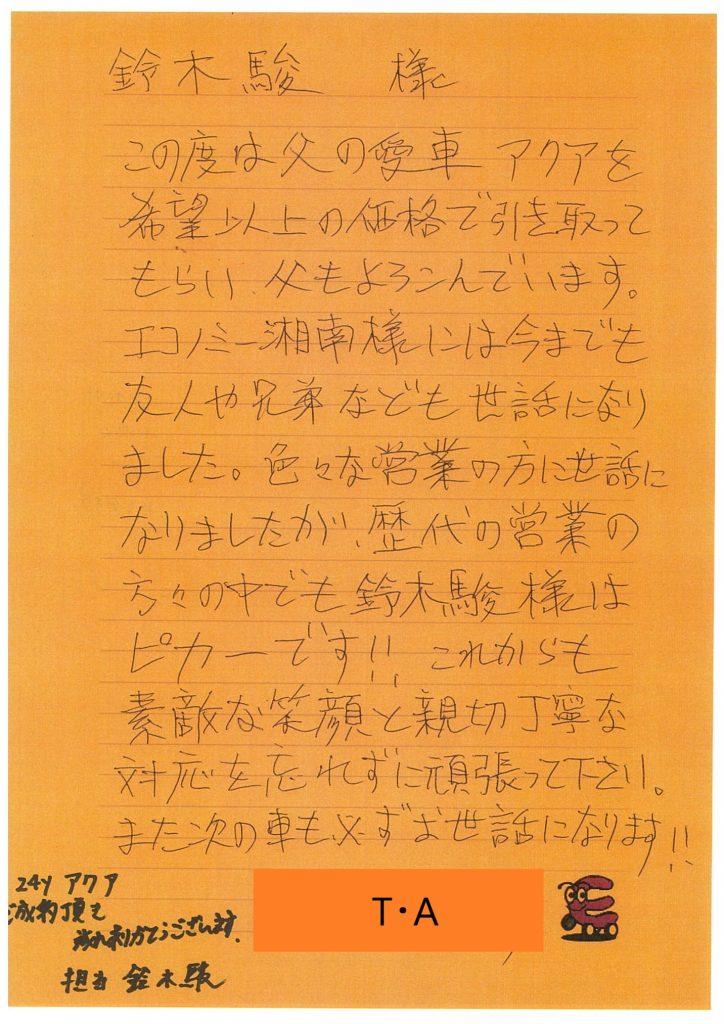 鈴木駿 様
この度は父の愛車 アクアを
希望以上の価格で引き取って
もらい、父もよろこんでいます。
エコノミー湘南様には今までも
友人や兄弟なども世話になり
ました。色々な営業の方に世話に
なりましたが、歴代の営業の
方々の中でも鈴木駿様は
ピカ一です!! これからも
素敵な笑顔と親切丁寧な
対応を忘れずに頑張って下さい。
また次の車も必ずお世話になります!!
24y アクア
ご成約頂き
ありがとうございます。
担当 鈴木駿
T・A